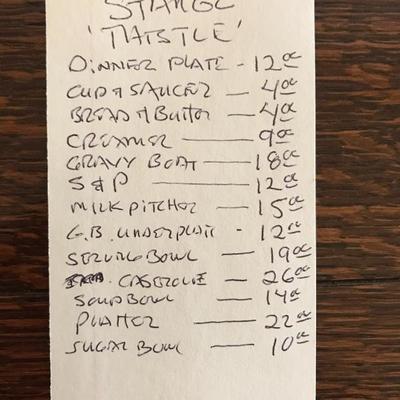 STANGL
'THISTLE'
DINNER PLATE - 12.00
CUP & SAUCER — 4.00
BREAD & BUTTER — 4.00
CREAMER — 9.00
GRAVY BOAT — 18.00
S&P — 12.00
MILK PITCHER — 15.00
G.B. UNDERPLATE - 12.00
SERVING BOWL — 19.00
CASEROLE — 26.00
SOUP BOWL — 14.00
PLATTER — 22.00
SUGAR BOWL — 10.00